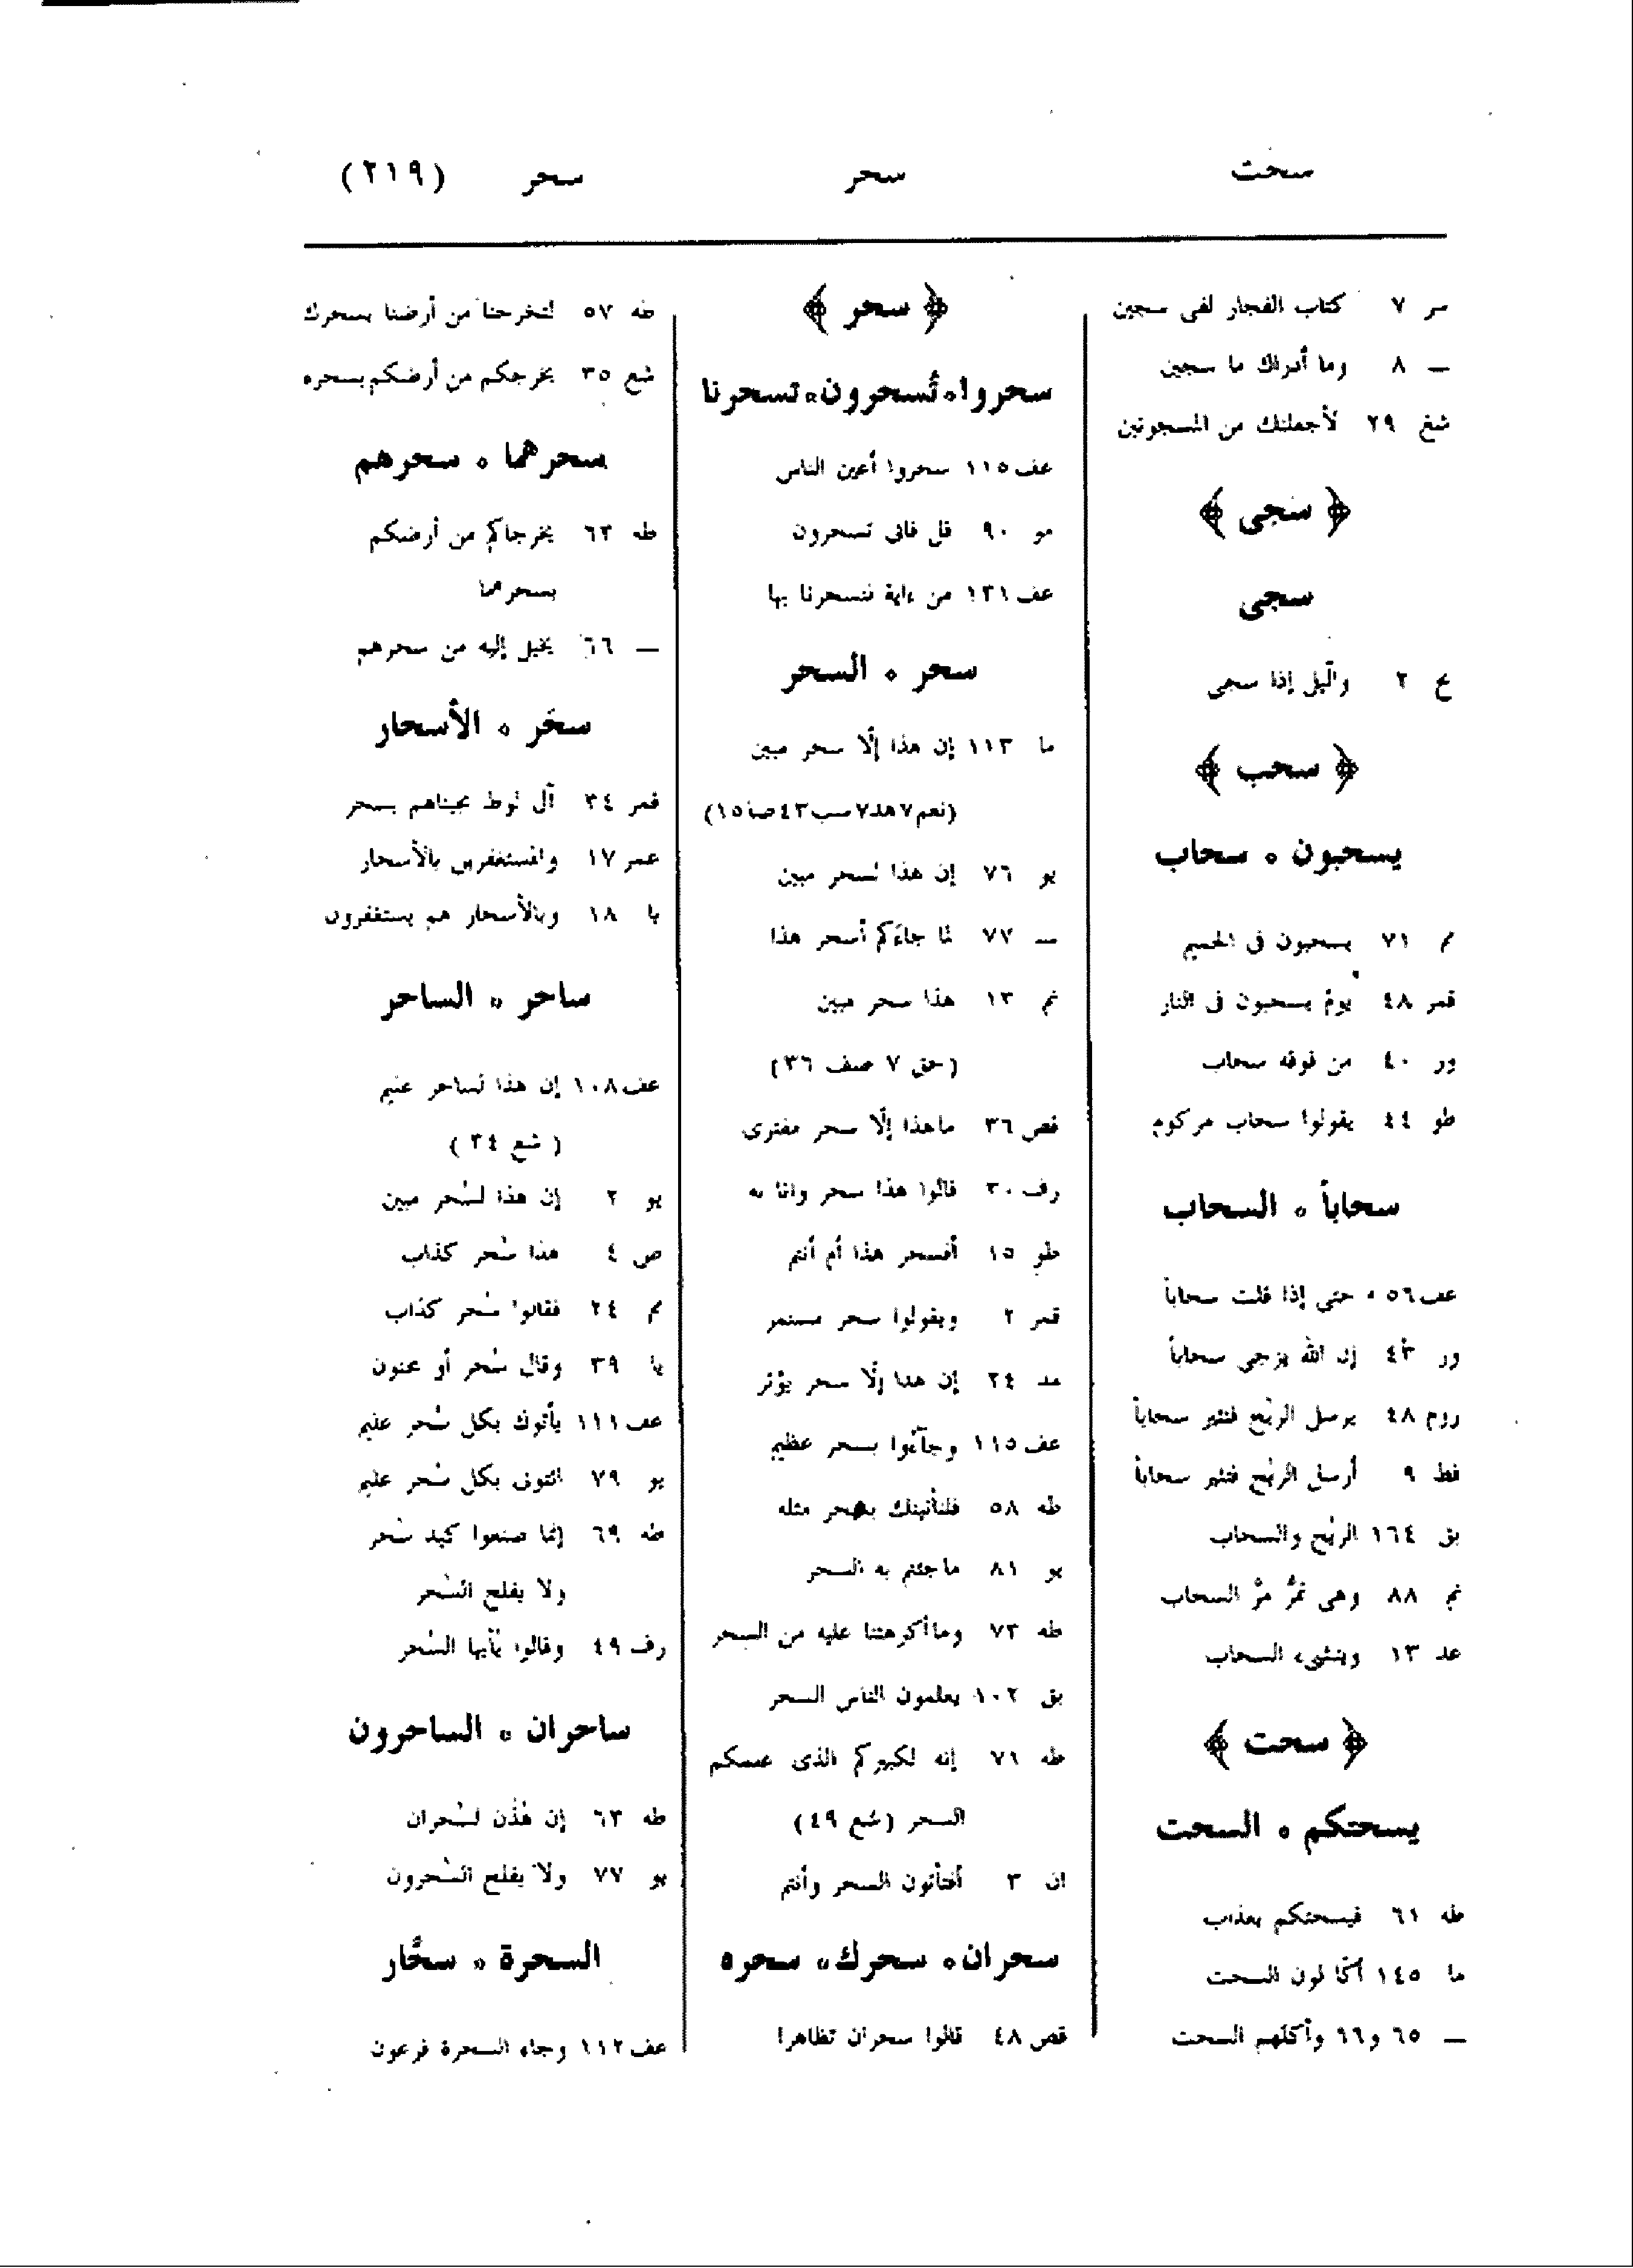 سحت سحر سحر (٢١٩)
سر ٧ كتاب الفجار لفى سجين
— ٨ وما أدراك ما سجين
شع ٢٩ لأجعلنك من المسجونين
﴿ سجى ﴾
سجى
ح ٢ والّيل إذا سجى
﴿ سحب ﴾
يسحبون ٠ سحاب
م ٧١ يسحبون فى الحميم
قمر ٤٨ يوم يسحبون فى النار
ور ٤٠ من فوقه سحاب
طو ٤٤ يقولوا سحاب مركوم
سحاباً ٠ السحاب
عف ٥٦ حتى إذا قلت سحاباً
ور ٤٣ إن الله يزجى سحاباً
روم ٤٨ يرسل الريٰح فتثير سحاباً
فط ٩ أرسل الريٰح فتثير سحاباً
بق ١٦٤ الريٰح والسحاب
نم ٨٨ وهى تمرُّ مرَّ السحاب
عد ١٣ وينشىء السحاب
﴿ سحت ﴾
يسحتكم ٠ السحت
طه ٦١ فيسحتكم بعذاب
ما ١٤٥ أكّالون السحت
— ٦٥ و٦٦ وأكلهم السحت
﴿ سحر ﴾
سحروا٠ تُسحرون٠ تسحرنا
عف ١١٥ سحروا أعين الناس
مو ٩٠ قل فانى تسحرون
عف ١٣١ من ءاية لتسحرنا بها
سحر ٠ السحر
ما ١١٣ إن هذا إلّا سحر مبين
(نعم ٧ هد ٧ سب ٤٣ صا ١٥)
يو ٧٦ إن هذا لسحر مبين
— ٧٧ لما جاءكم أسحر هذا
نم ١٣ هذا سحر مبين
(حق ٧ صف ٣٦)
قص ٣٦ ماهذا إلّا سحر مفترى
رف ٣٠ قالوا هذا سحر وانا به
طو ١٥ أفسحر هذا أم أنتم
قمر ٢ ويقولوا سحر مستمر
مد ٢٤ إن هذا إلّا سحر يؤثر
عف ١١٥ وجآءُوا بسحر عظيم
طه ٥٨ فلنأتينك بسحر مثله
يو ٨١ ماجئتم به السحر
طه ٧٣ وماأكرهتنا عليه من السحر
بق ١٠٢ يعلمون الناس السحر
طه ٧١ إنه لكبيركم الذى علمكم
السحر (شع ٤٩)
ان ٣ أفتأتون السحر وأنتم
سحران٠ سحرك٠ سحره
قص ٤٨ قالوا سحران تظاهرا
طه ٥٧ لتخرجنا من أرضنا بسحرك
شع ٣٥ يخرجكم من أرضكم بسحره
بسحرهما ٠ سحرهم
طه ٦٣ يخرجاكم من أرضكم
بسحرهما
— ٦٦ يخيل إليه من سحرهم
سحَر ٠ الأسحار
قمر ٣٤ آل لوط نجيناهم بسحر
عمر ١٧ والمستغفرين بالأسحار
يا ١٨ وبالأسحار هم يستغفرون
ساحر ٠ الساحر
عف ١٠٨ إن هذا لساحر عليم
( شع ٣٤ )
يو ٢ إن هذا لسٰحر مبين
ص ٤ هذا سٰحر كذاب
م ٢٤ فقالوا سٰحر كذاب
يا ٣٩ وقال سٰحر أو مجنون
عف ١١١ يأتوك بكل سٰحر عليم
يو ٧٩ ائتونى بكل سٰحر عليم
طه ٦٩ إنما صنعوا كيد سٰحر
ولا يفلح السٰحر
رف ٤٩ وقالوا يٰأيها السٰحر
ساحران ٠ الساحرون
طه ٦٣ إن هٰذٰن لسٰحران
يو ٧٧ ولا يفلح السٰحرون
السحرة ٠ سحَّار
عف ١١٢ وجاء السحرة فرعون